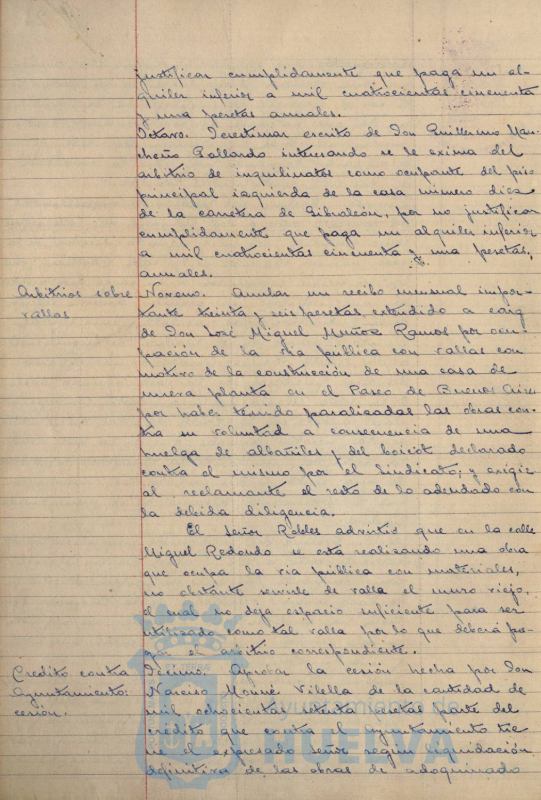 justificar cumplidamente que paga un al-
quiler inferior a mil cuatrocientas cincuenta
y una pesetas anuales.
Octavo. Desestimar escrito de Don Guillermo Man-
cheño Gallardo interesando se le exima del
arbitrio de inquilinatos como ocupante del piso
principal izquierda de la casa número diez
de la carretera de Gibraleón, por no justificar
cumplidamente que paga un alquiler inferior
a mil cuatrocientas cincuenta y una pesetas,
anuales.
Arbitrios sobre
vallas
Noveno. Anular un recibo mensual impor-
tante treinta y seis pesetas extendido a cargo
de Don José Miguel Muñoz Ramos por ocu-
pación de la vía pública con vallas con
motivo de la construcción de una casa de
nueva planta en el Paseo de Buenos Aires
por haber tenido paralizadas las obras con-
tra su voluntad a consecuencia de una
huelga de albañiles y del boicot declarado
contra el mismo por el Sindicato; y exigir
al reclamante el resto de lo adeudado con
la debida diligencia.
El señor Robles advirtió que en la calle
Miguel Redondo se está realizando una obra
que ocupa la vía pública con materiales,
no obstante servirle de valla el muro viejo,
el cual no deja espacio suficiente para ser
utilizado como tal valla por lo que deberá pa-
gar el arbitrio correspondiente.
Crédito contra
Ayuntamiento:
cesión.
Décimo. Aprobar la cesión hecha por Don
Narciso Mouné Vilella de la cantidad de
mil ochocientas setenta pesetas parte del
crédito que contra el Ayuntamiento tie-
ne el expresado señor según liquidación
definitiva de las obras de adoquinado
Ayuntamiento de
HUELVA